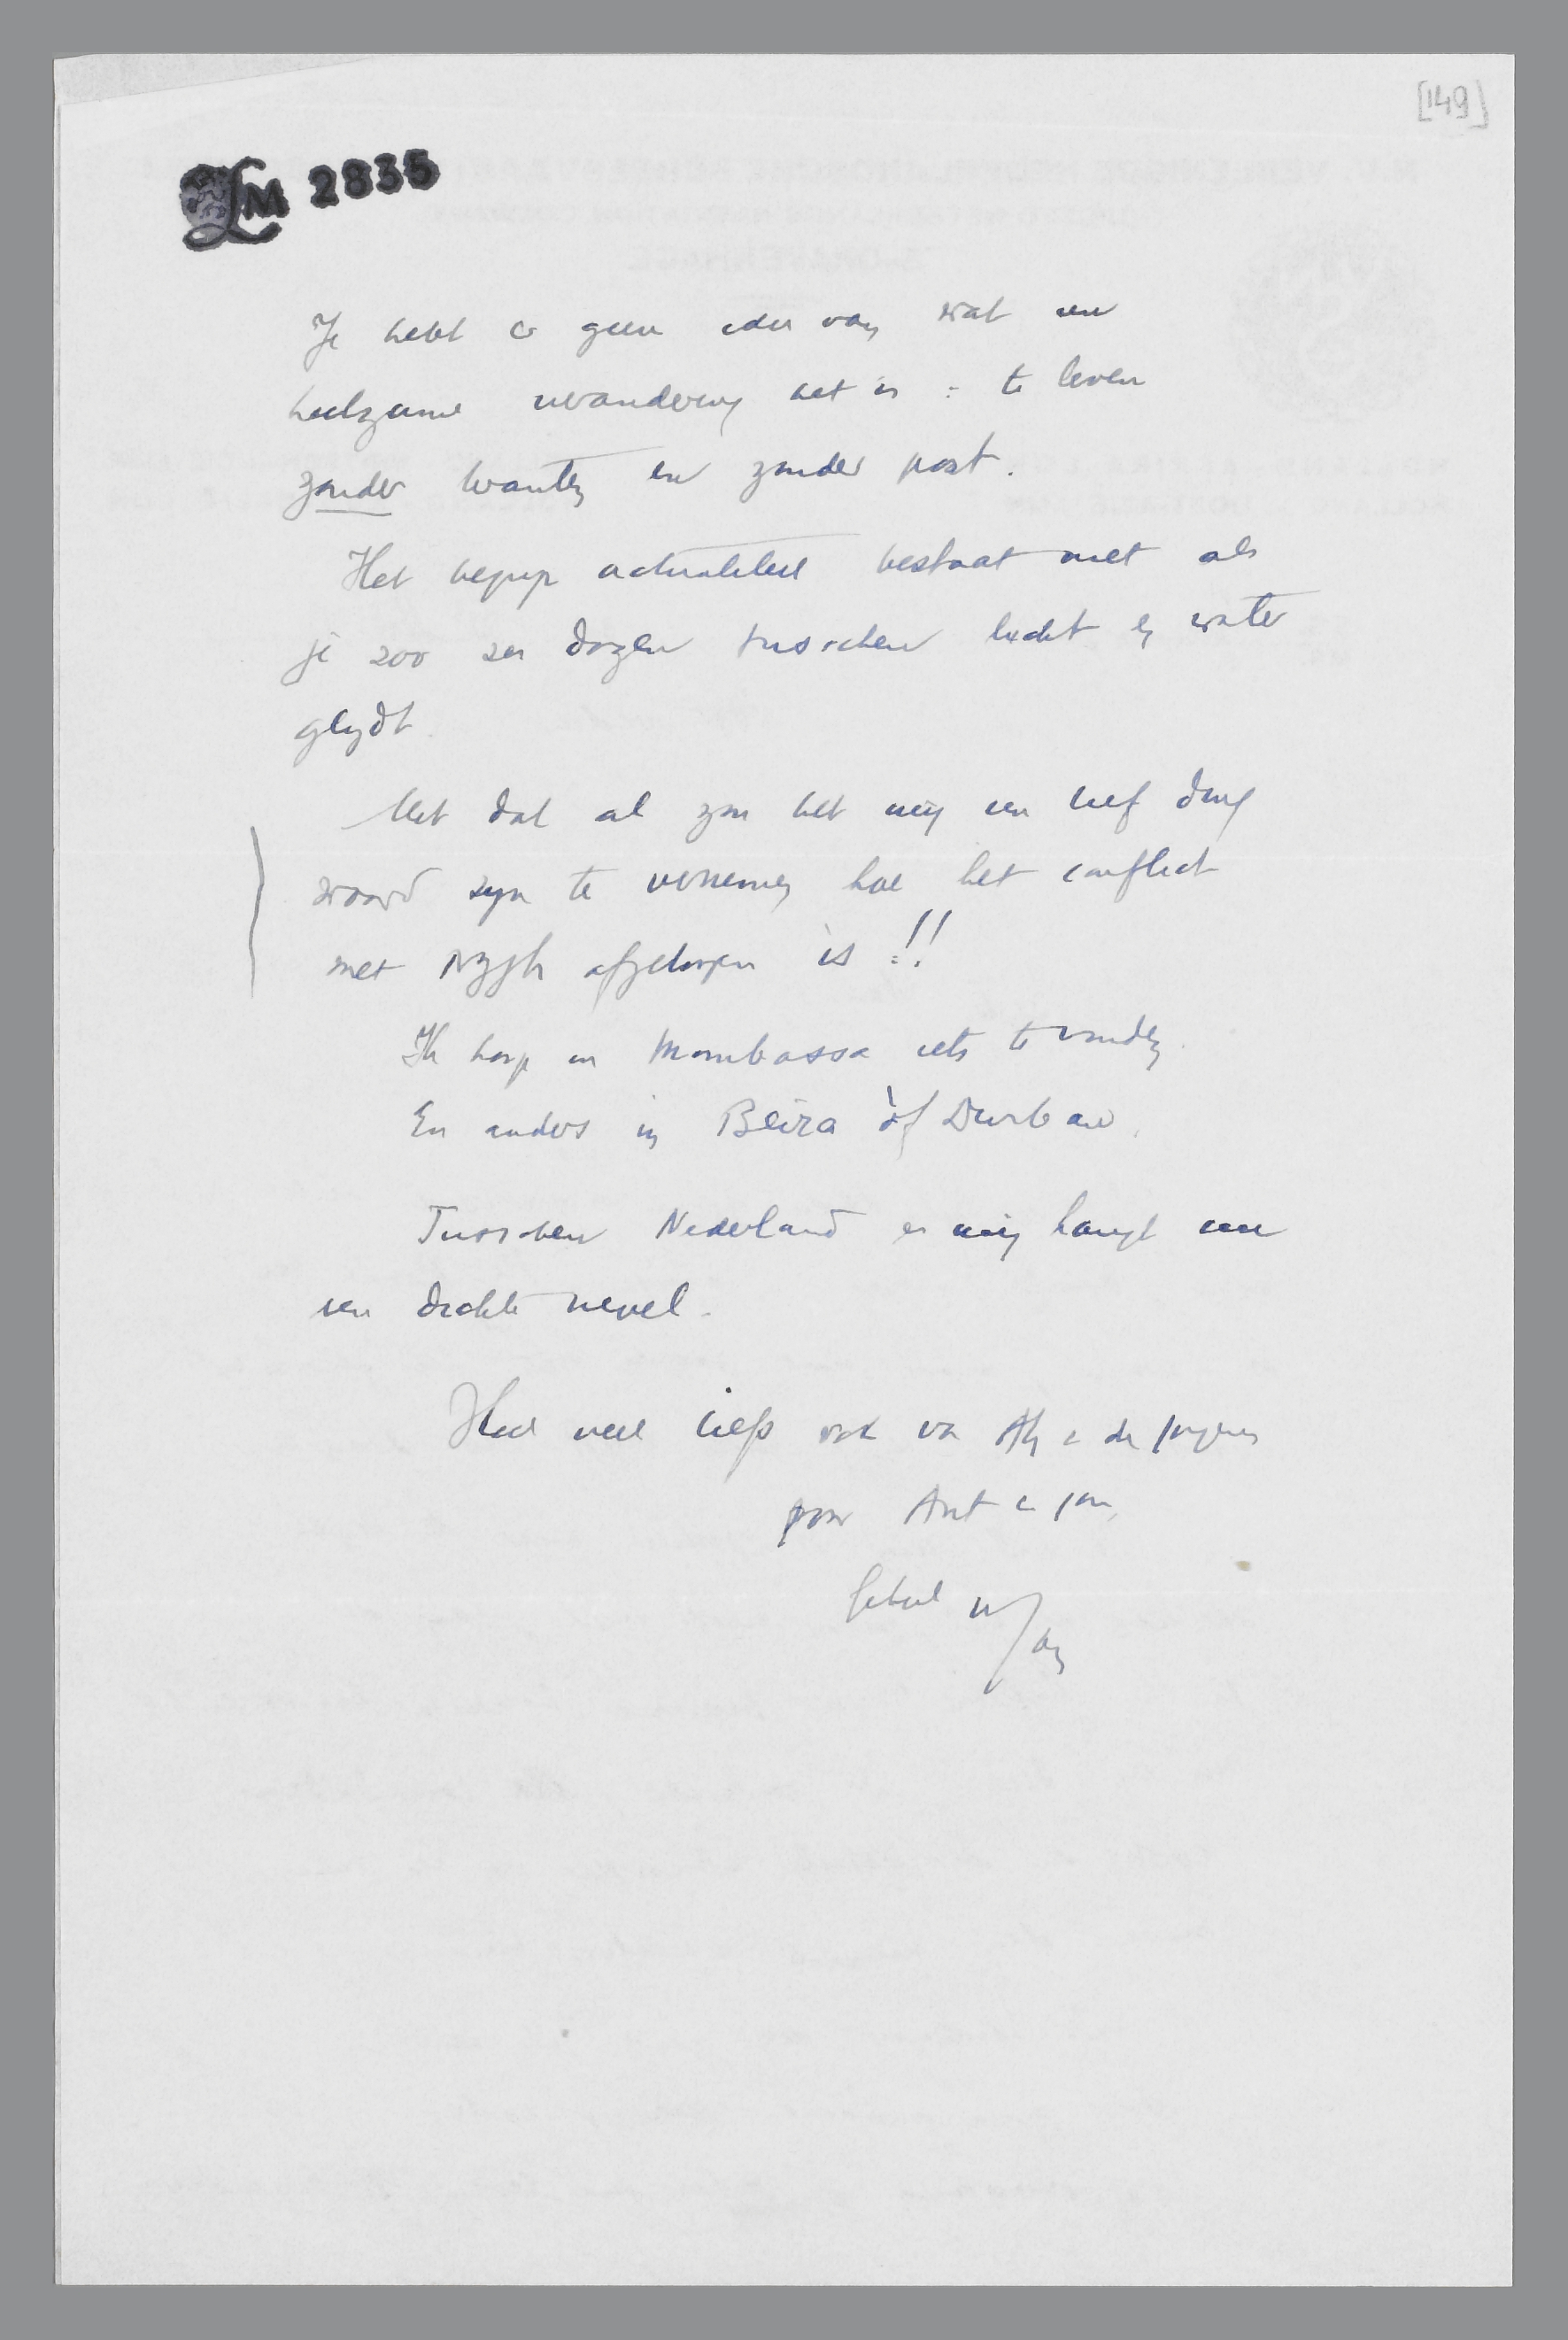 [149]
LM 2835
Je hebt er geen idee van wat een
heilzame verandering het is : te leven
zonder kranten en zonder post.
Het begrip actualiteit bestaat niet als
je zoo zes dagen tusschen lucht en water
glijdt.
Met dat al zou het mij een lief ding
waard zijn te vernemen hoe het conflict
met Nijgh afgeloopen is !!
Ik hoop in Mombassa iets te vinden.
En anders in Beira òf Durban.
Tusschen Nederland en mij hangt nu
een dichte nevel.
Heel veel liefs ook van Atty en de jongens
voor Ant en jou,
geheel uw
Jan